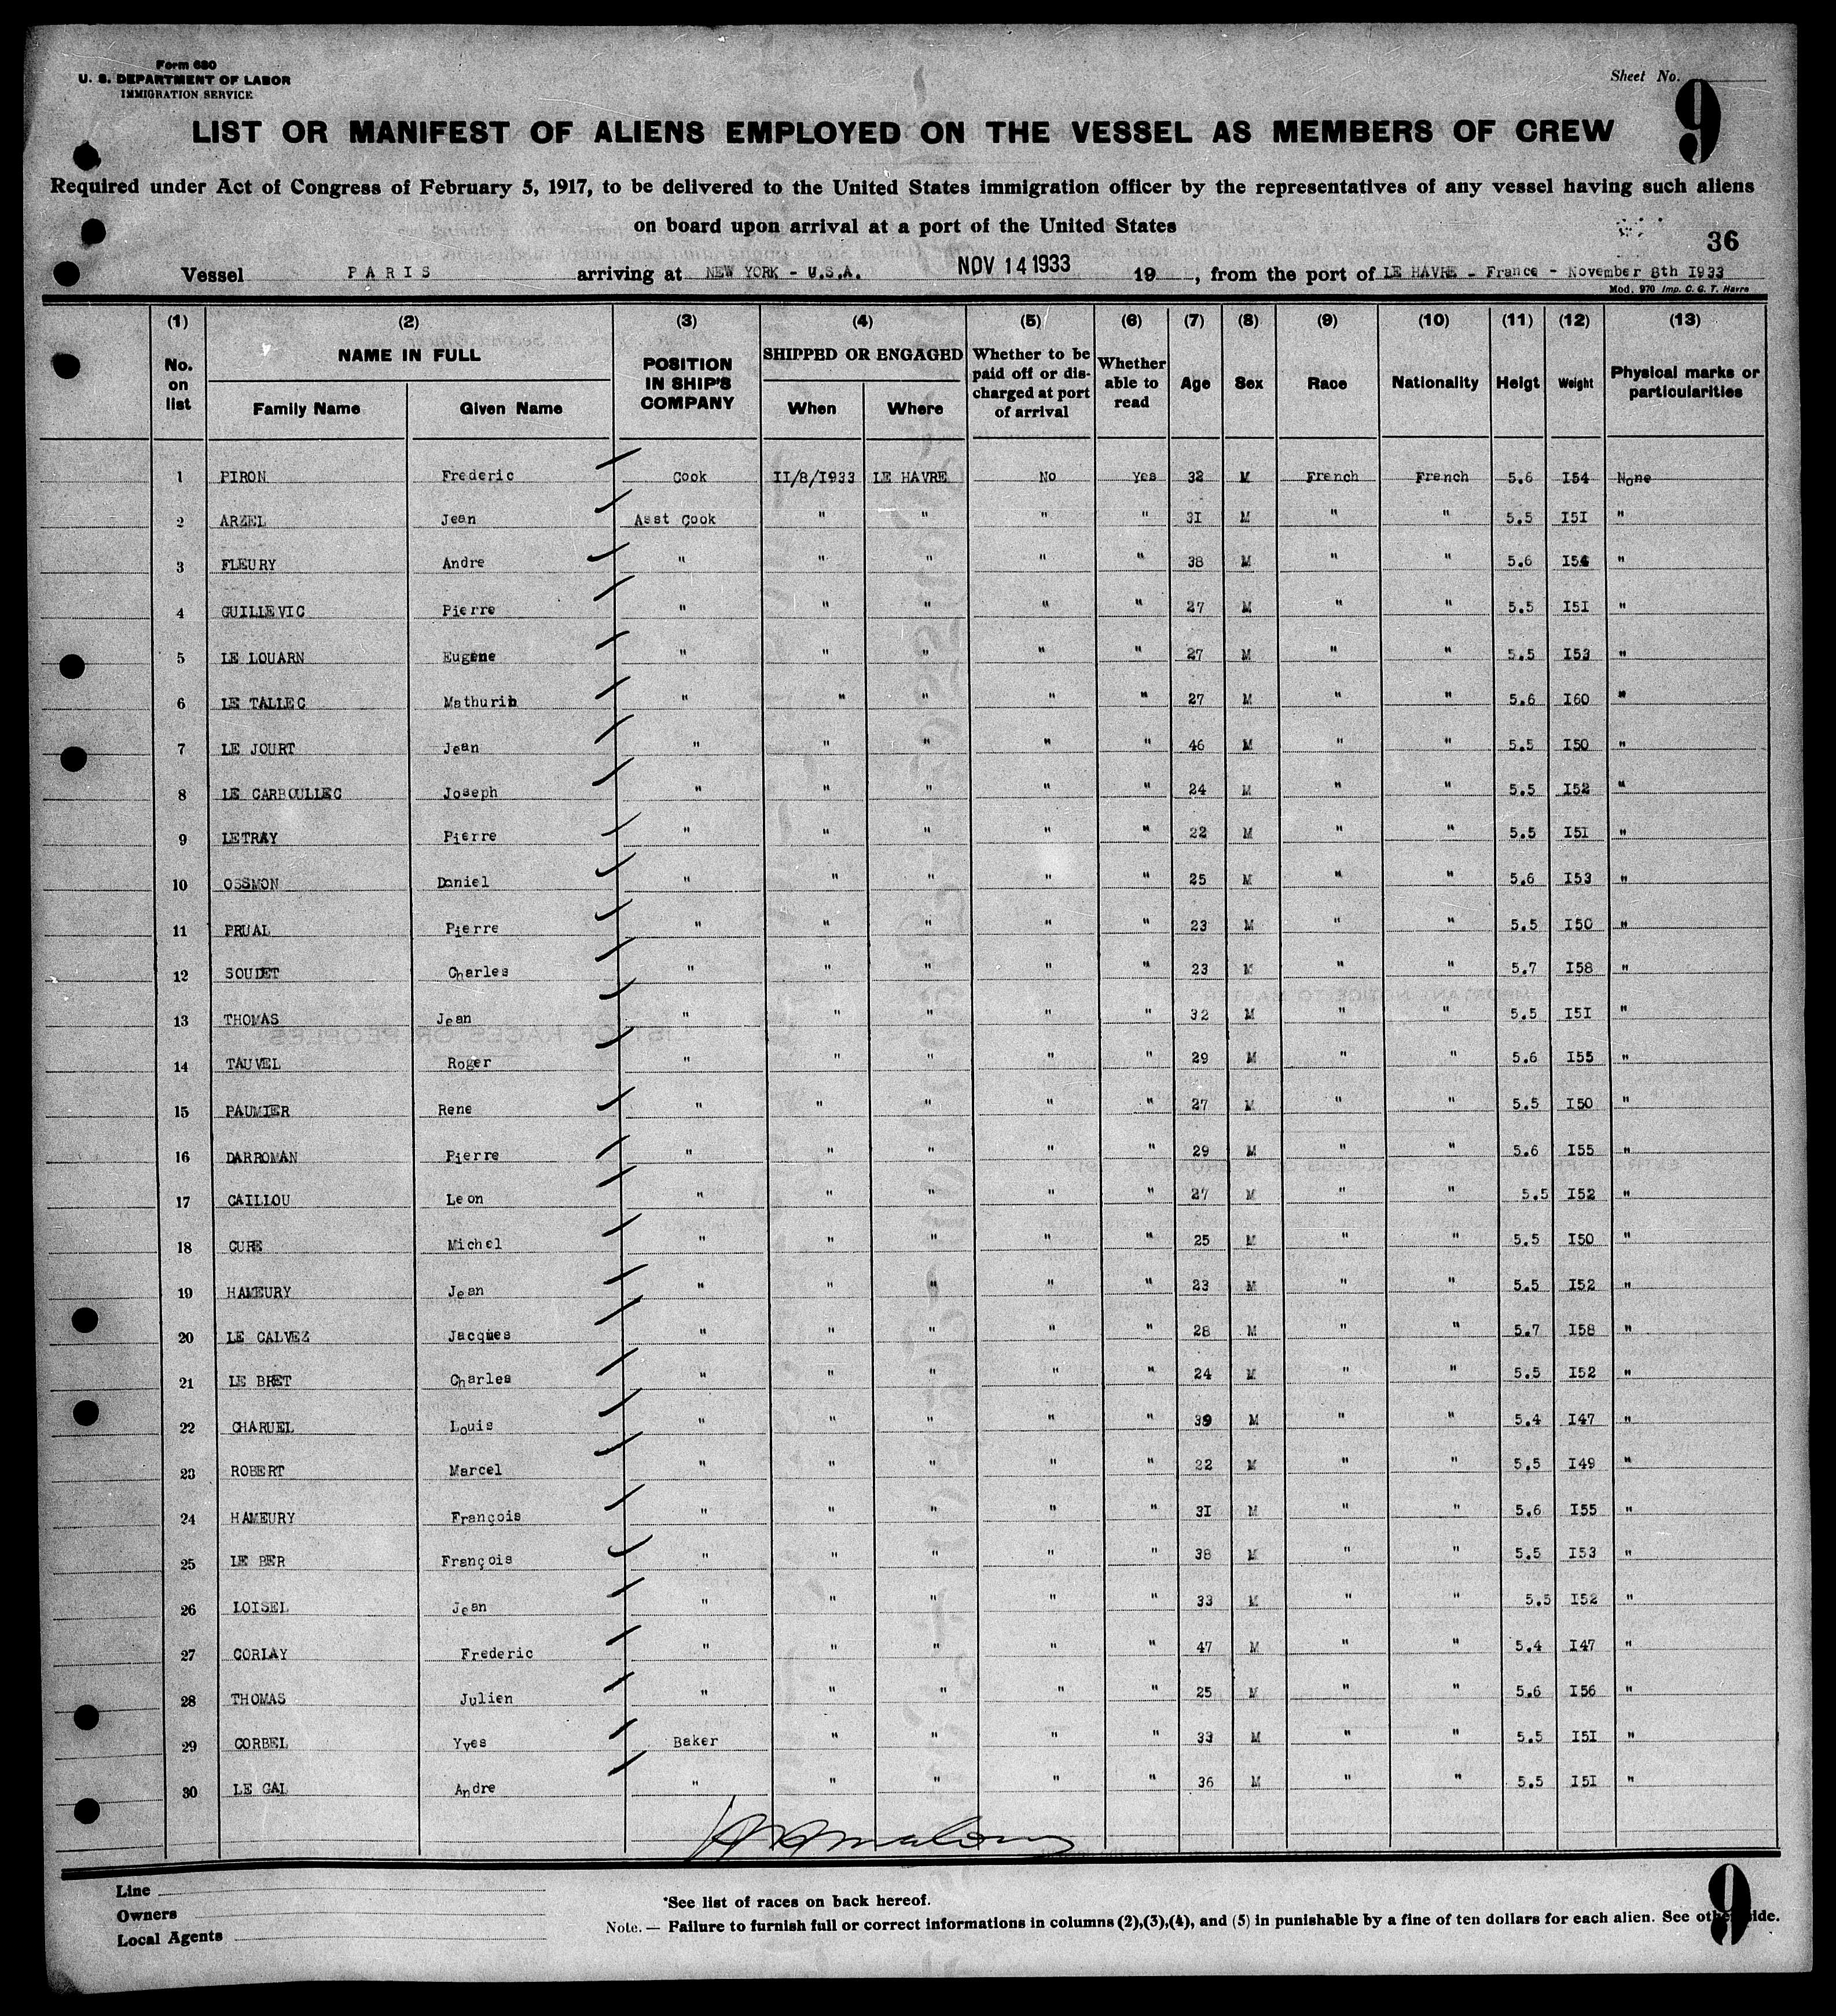 Form 680
U. S. DEPARTMENT OF LABOR
IMMIGRATION SERVICE
Sheet No. 9
LIST OR MANIFEST OF ALIENS EMPLOYED ON THE VESSEL AS MEMBERS OF CREW
Required under Act of Congress of February 5, 1917, to be delivered to the United States immigration officer by the representatives of any vessel having such aliens
on board upon arrival at a port of the United States
36
Vessel PARIS arriving at NEW YORK - U.S.A. NOV 14 1933 19 , from the port of LE HAVRE - France - November 8th I933
Mod. 970 Imp. C. G. T. Havre
(1) (2) (3) (4) (5) (6) (7) (8) (9) (10) (11) (12) (13)
No. on list NAME IN FULL Family Name Given Name POSITION IN SHIP'S COMPANY SHIPPED OR ENGAGED When Where Whether to be paid off or discharged at port of arrival Whether able to read Age Sex Race Nationality Heigt Weight Physical marks or particularities
1 PIRON Frederic Cook II/8/I933 LE HAVRE No Yes 32 M French French 5.6 I54 None
2 ARZEL Jean Asst Cook " " " " 3I M " " 5.5 I5I "
3 FLEURY Andre " " " " " 38 M " " 5.6 I54 "
4 GUILLEVIC Pierre " " " " " 27 M " " 5.5 I5I "
5 LE LOUARN Eugene " " " " " 27 M " " 5.5 I53 "
6 LE TALLEC Mathurin " " " " " 27 M " " 5.6 I60 "
7 LE JOURT Jean " " " " " 46 M " " 5.5 I50 "
8 LE CARBOULLEC Joseph " " " " " 24 M " " 5.5 I52 "
9 LETRAY Pierre " " " " " 22 M " " 5.5 I5I "
10 OSSMON Daniel " " " " " 25 M " " 5.6 I53 "
11 PRUAL Pierre " " " " " 23 M " " 5.5 I50 "
12 SOUDET Charles " " " " " 23 M " " 5.7 I58 "
13 THOMAS Jean " " " " " 32 M " " 5.5 I5I "
14 TAUVEL Roger " " " " " 29 M " " 5.6 I55 "
15 PAUMIER Rene " " " " " 27 M " " 5.5 I50 "
16 DARROMAN Pierre " " " " " 29 M " " 5.6 I55 "
17 CAILLOU Leon " " " " " 27 M " " 5.5 I52 "
18 CURE Michel " " " " " 25 M " " 5.5 I50 "
19 HAMEURY Jean " " " " " 23 M " " 5.5 I52 "
20 LE CALVEZ Jacques " " " " " 28 M " " 5.7 I58 "
21 LE BRET Charles " " " " " 24 M " " 5.5 I52 "
22 CHARUEL Louis " " " " " 39 M " " 5.4 I47 "
23 ROBERT Marcel " " " " " 22 M " " 5.5 I49 "
24 HAMEURY François " " " " " 3I M " " 5.6 I55 "
25 LE BER François " " " " " 38 M " " 5.5 I53 "
26 LOISEL Jean " " " " " 33 M " " 5.5 I52 "
27 CORLAY Frederic " " " " " 47 M " " 5.4 I47 "
28 THOMAS Julien " " " " " 25 M " " 5.6 I56 "
29 CORBEL Yves Baker " " " " 33 M " " 5.5 I5I "
30 LE GAL Andre " " " " " 36 M " " 5.5 I5I "
Line
Owners
Local Agents
*See list of races on back hereof.
Note. — Failure to furnish full or correct informations in columns (2),(3),(4), and (5) in punishable by a fine of ten dollars for each alien. See other side.
9